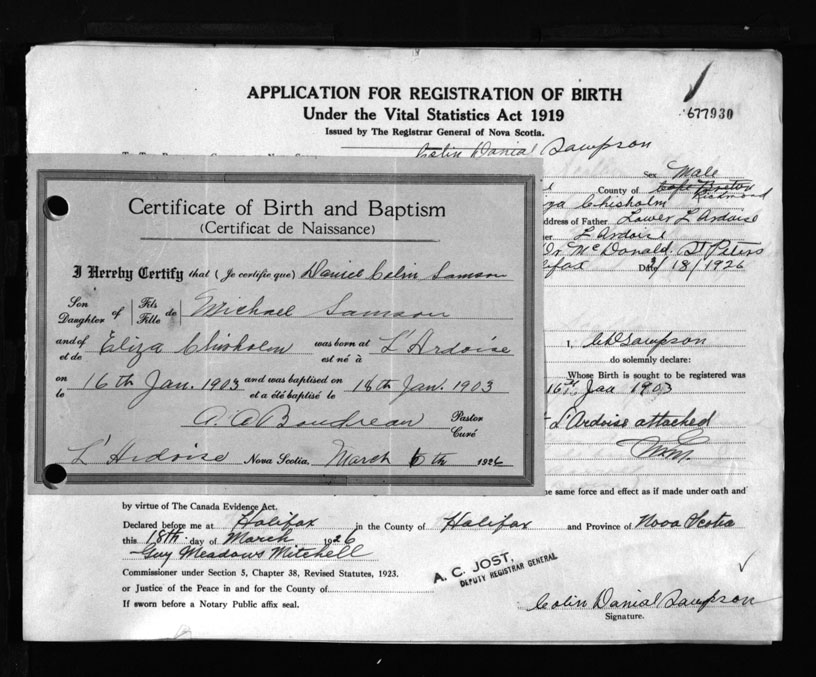 APPLICATION FOR REGISTRATION OF BIRTH
Under the Vital Statistics Act 1919
Issued by The Registrar General of Nova Scotia.
677930
Colin Danial Sampson
Sex Male
County of Cape Breton Richmond
za Chisholm
ddress of Father Lower L'Ardoise
her L'Ardoise
Dr McDonald. St Peters
lifax Date 18/1926
I, C D Sampson
do solemnly declare:
Whose Birth is sought to be registered was
16th Jan 1903
L'Ardoise attached
Certificate of Birth and Baptism
(Certificat de Naissance)
I Hereby Certify that (Je certifie que) Daniel Colin Samson
Son Daughter of Fils Fille de Michael Samson
and of et de Eliza Chisholm was born at est né à L'Ardoise
on le 16th Jan. 1903 and was baptised on et a été baptisé le 18th Jan. 1903
A. A Boudreau Pastor Curé
L'Ardoise Nova Scotia, March 6th 1926
he same force and effect as if made under oath and
by virtue of The Canada Evidence Act.
Declared before me at Halifax in the County of Halifax and Province of Nova Scotia
this 18th day of March 1926
Guy Meadows Mitchell
Commissioner under Section 5, Chapter 38, Revised Statutes, 1923.
or Justice of the Peace in and for the County of
If sworn before a Notary Public affix seal.
A. C. JOST,
DEPUTY REGISTRAR GENERAL
Colin Danial Sampson
Signature.